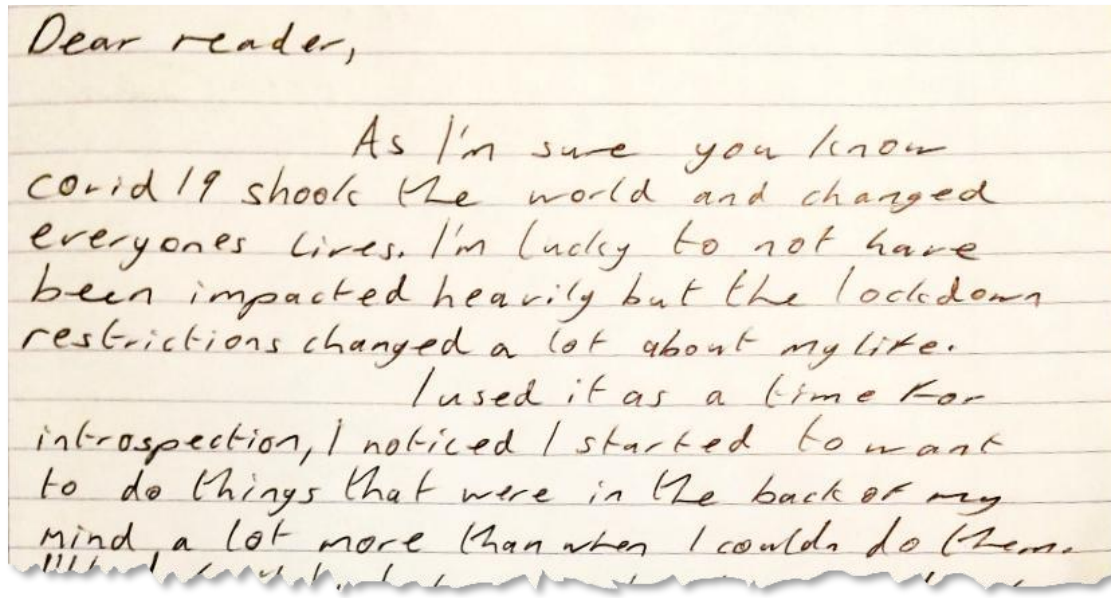 Dear reader,
As I'm sure you know
covid 19 shook the world and changed
everyones lives. I'm lucky to not have
been impacted heavily but the lockdown
restrictions changed a lot about my life.
I used it as a time for
introspection, I noticed I started to want
to do things that were in the back of my
mind a lot more than when I couldn do them.